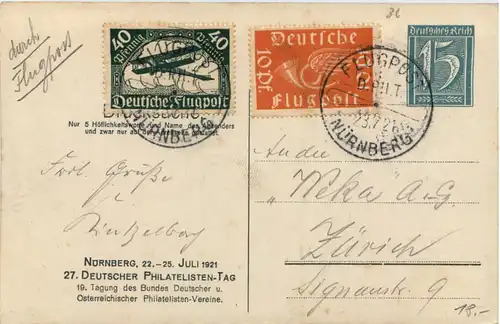 durch
Flugpost
40 40
Pfennig Pfennig
Deutsche Flugpost
Deutsche
10 Pf. 10 Pf.
Flugpost
Deutsches Reich
15
FLUGPOST
NÜRNBERG
FLUGPOST
NÜRNBERG
Drucksache
Nur 5 Höflichkeitsworte und Name des Absenders
und zwar nur auf der
An die
Frdl. Grüße
"Weka" A.G.
Zürich
Signaustr. 9
NÜRNBERG, 22.-25. JULI 1921
27. DEUTSCHER PHILATELISTEN-TAG
19. Tagung des Bundes Deutscher u.
Österreichischer Philatelisten-Vereine.
18.-